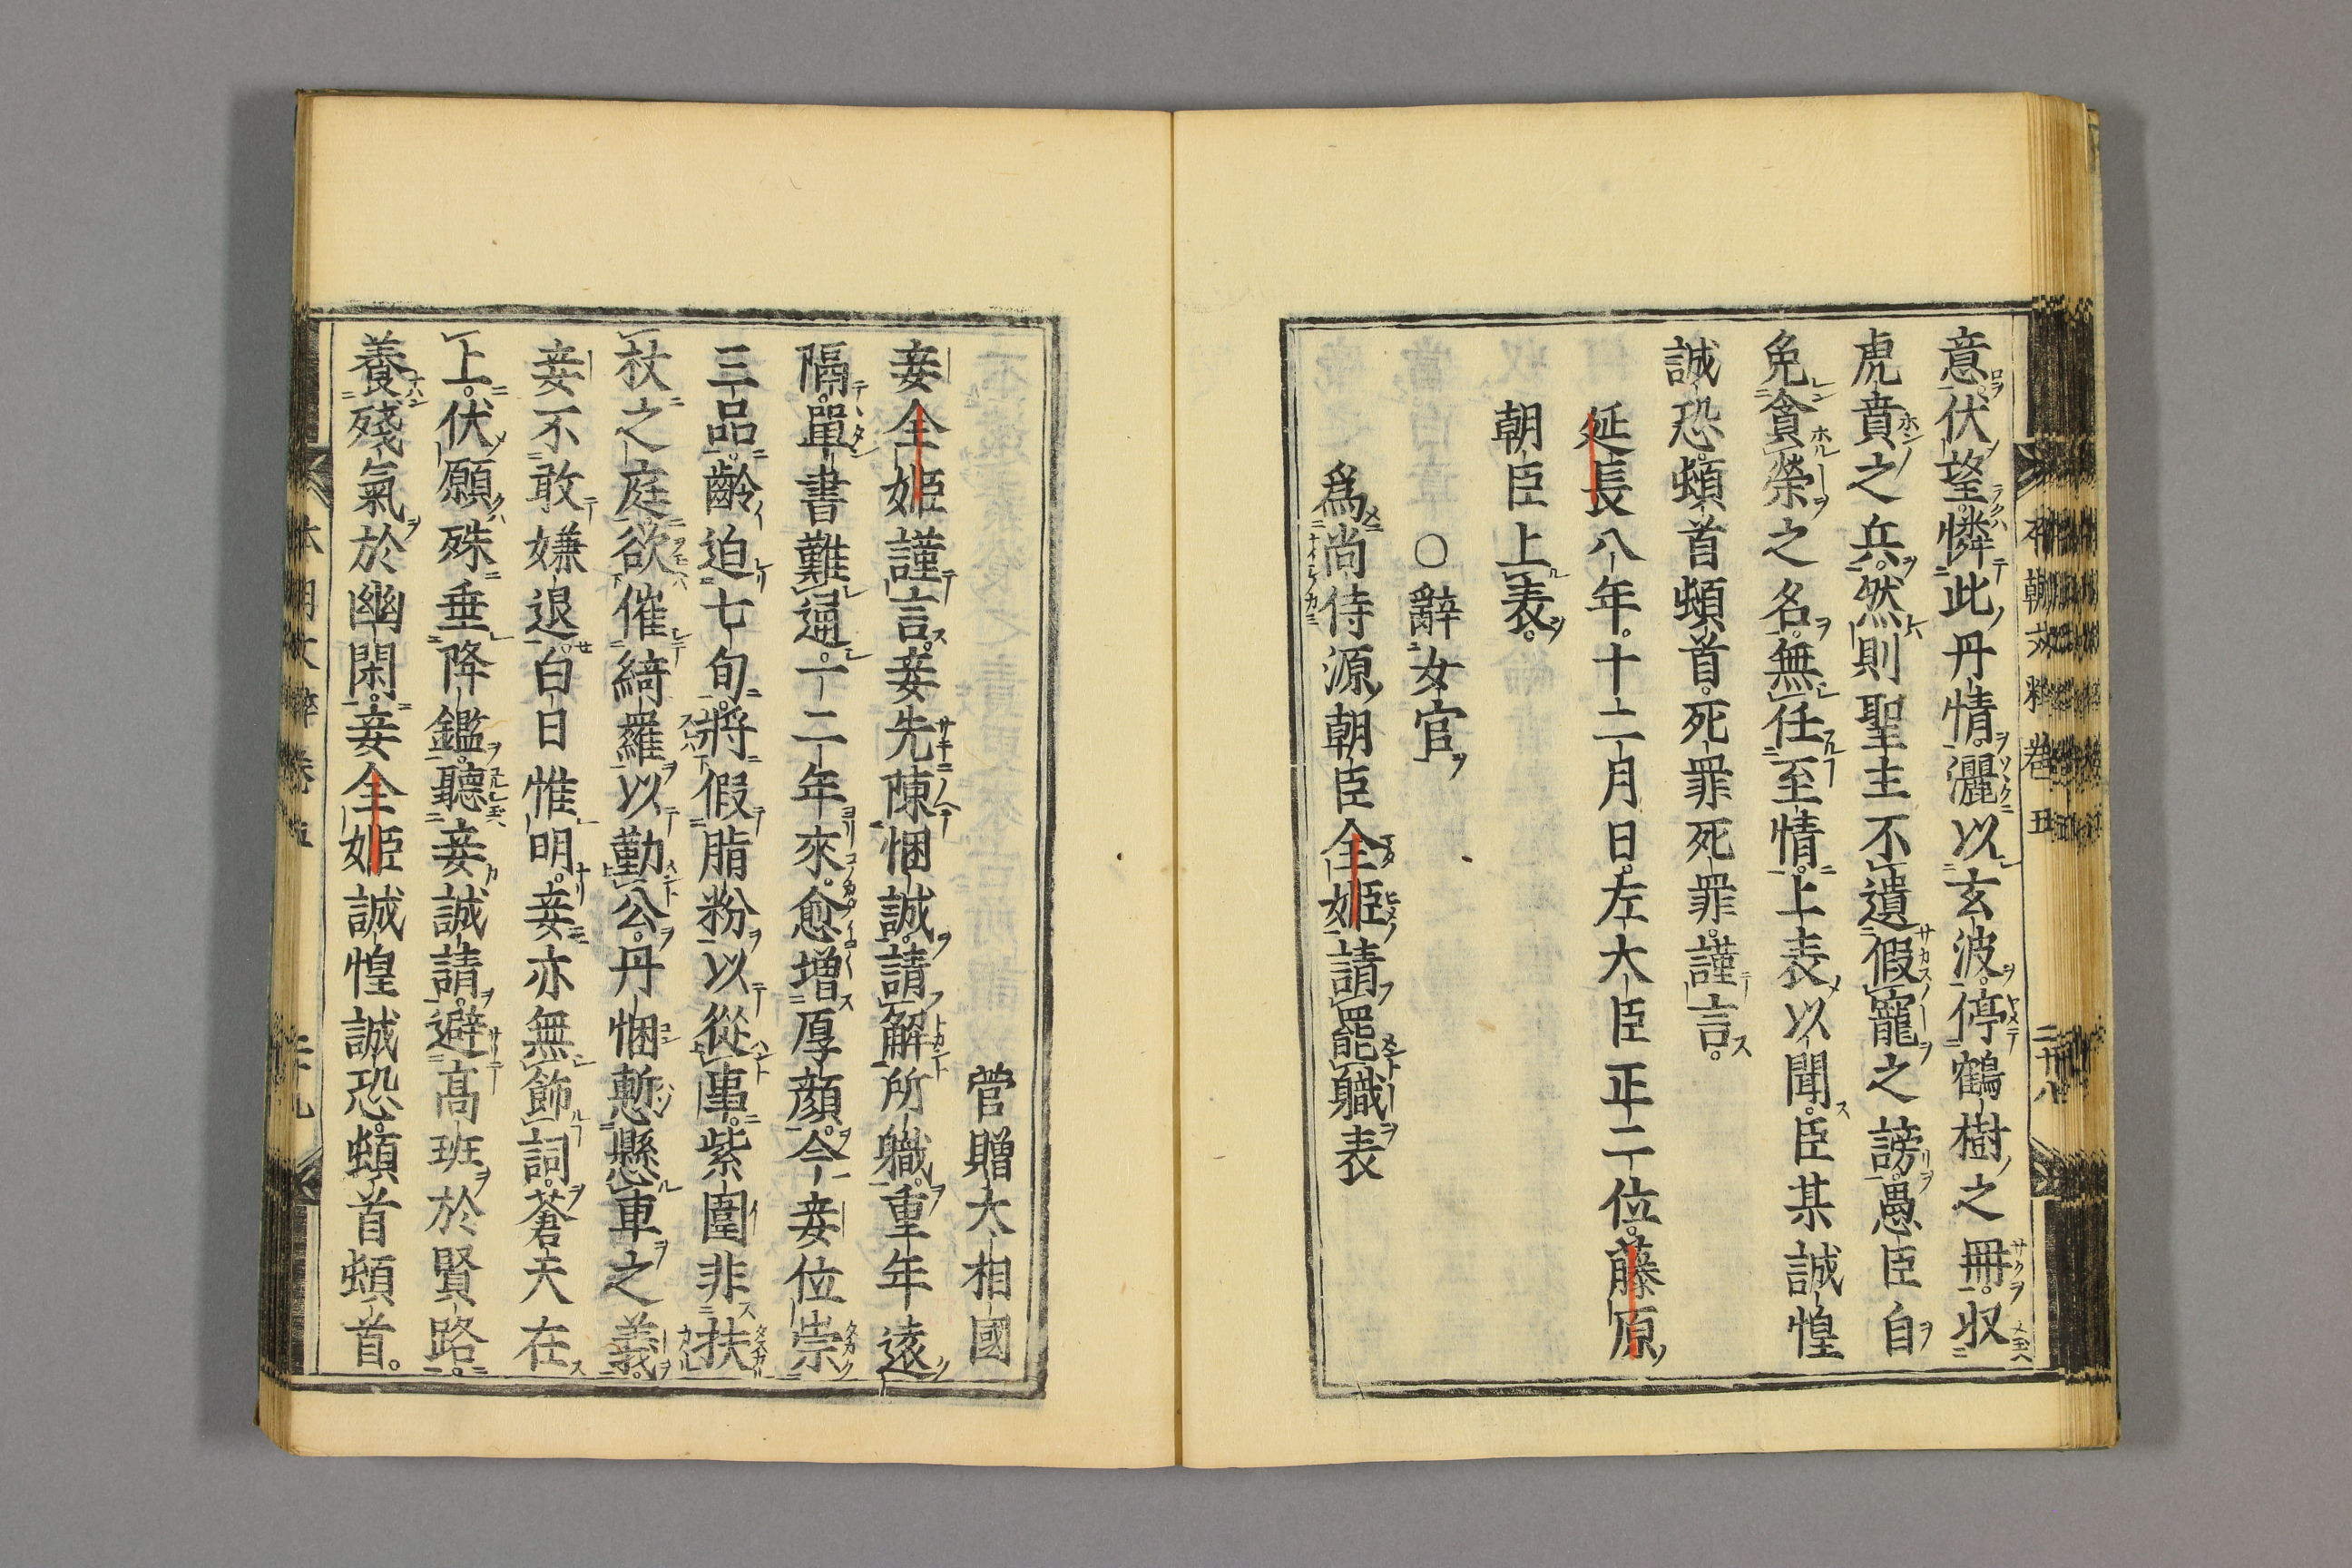 意伏望。憐此丹情。灑以玄波。停鶴樹之冊。収
虎賁之兵。然則聖主不遺假寵之謗。愚臣自
免貪榮之名。無任至情。上表以聞。臣某誠惶
誠恐。頓首頓首。死罪死罪。謹言。
延長八年。十二月日。左大臣正二位。藤原
朝臣上表。
○辭女官
爲尚侍源朝臣全姬請罷職表
菅贈大相國
妾全姬謹言。妾先陳悃誠。請解所職。重年遠
隔。單書難通。一二年來。愈增厚顏。今妾位崇
三品。齡迫七旬。將假脂粉以從事。紫闈非扶
杖之庭。欲催綺羅以勤公。丹悃慙懸車之義。
妾不敢嫌退。白日惟明。妾亦無飾詞。蒼天在
上。伏願殊垂降鑑。聽妾誠請。避高班於賢路。
養殘氣於幽閑。妾全姬誠惶誠恐。頓首頓首。
本朝文粹卷五
二十八